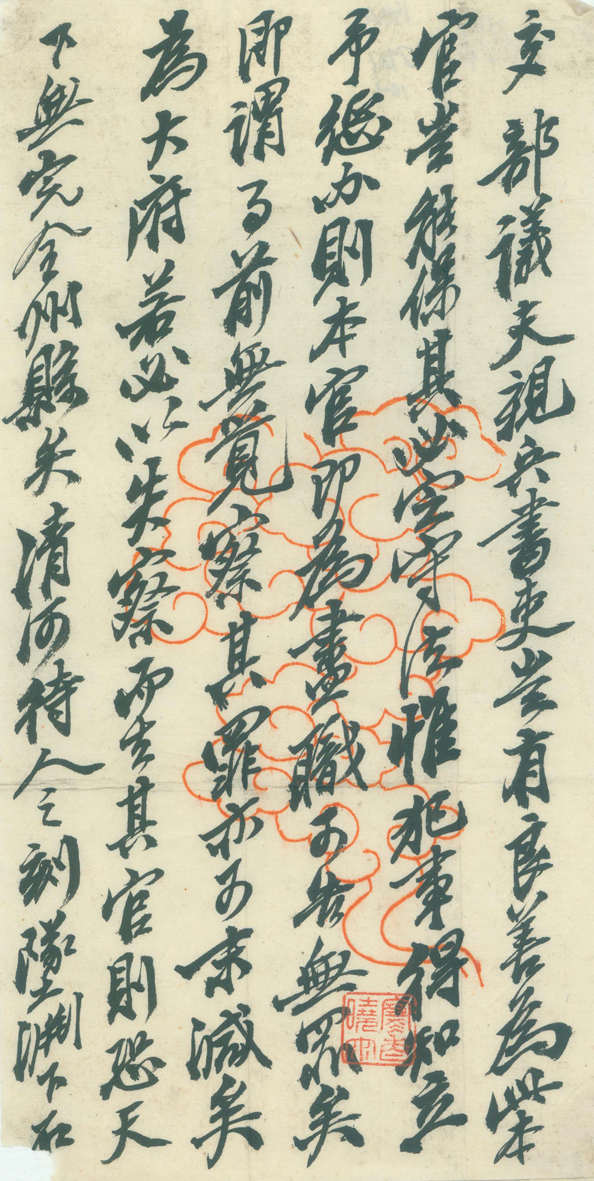 交 部議夫視兵書吏豈有良善為此本
官豈能保其必定守法惟犯事得知立
予懲办則本官即為盡職可告無罪矣
即謂事前無覚察其罪亦可末減矣
為大府若必以失察而去其官則恐天
下無完全州縣矣清河待人之刻墜淵下石